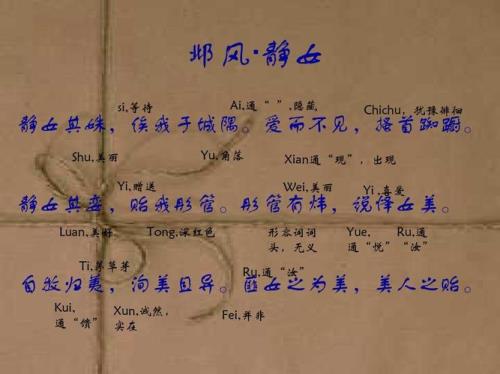 邶风·静女
si,等待 Ai,通“ ”,隐蔽 Chichu，犹豫徘徊
静女其姝，俟我于城隅。爱而不见，搔首踟蹰。
Shu,美丽 Yu,角落 Xian通“现”，出现
Yi,赠送 Wei,美丽 Yi,喜爱
静女其娈，贻我彤管。彤管有炜，说怿女美。
Luan,美好 Tong,深红色 形容词词头，无义 Yue,通“悦” Ru,通“汝”
Ti,茅草芽 Ru,通“汝”
自牧归荑，洵美且异。匪女之为美，美人之贻。
Kui,通“馈” Xun,诚然，实在 Fei,并非